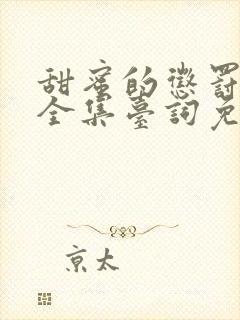 甜蜜的懲罰
全集臺詞免
京太